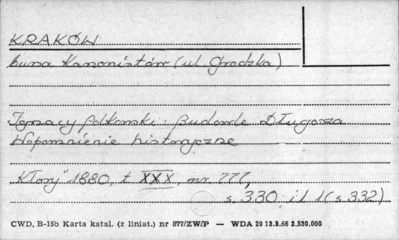 KRAKÓW
bursa Kanonistów (ul. Grodzka)
Ignacy Polkowski: Budowle Długosza
Wspomnienie historyczne
"Kłosy" 1880, t. XXX, nr 777,
s. 330 il. 1 (s. 332)
CWD, B-15b Karta katal. (z liniat.) nr 877/ZW/P — WDA 29 13.5.66 3.530.000